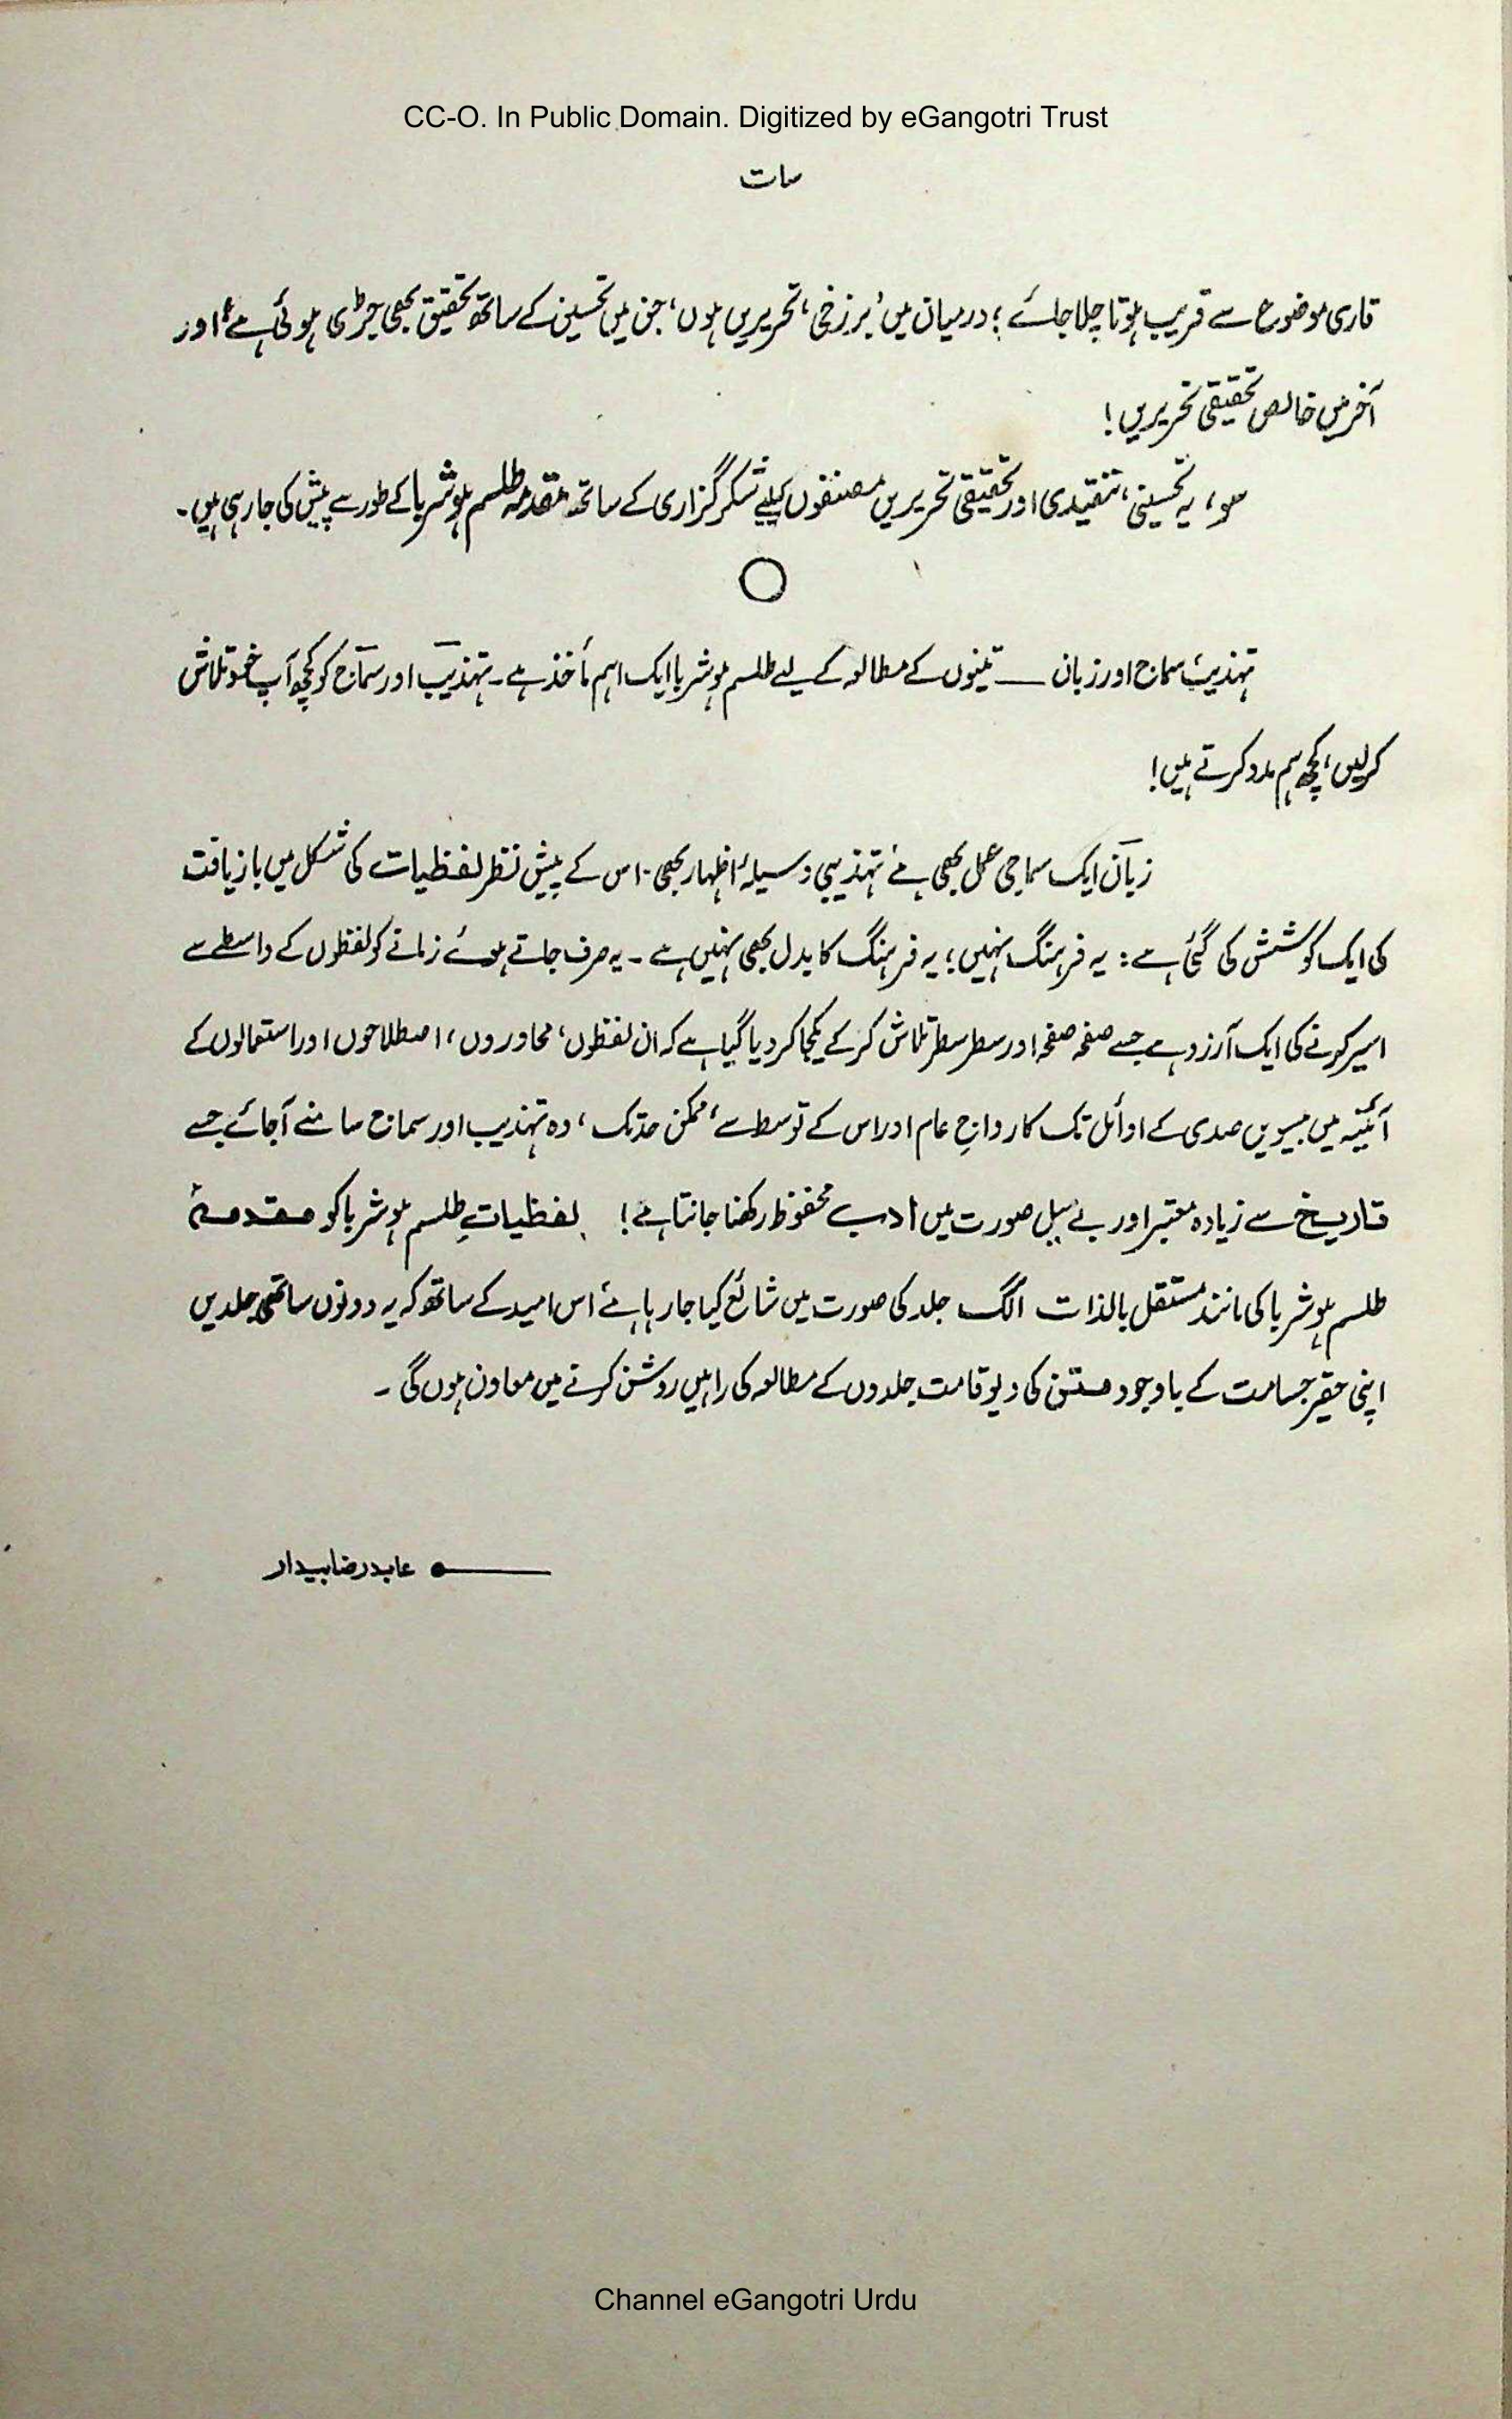 CC-O. In Public Domain. Digitized by eGangotri Trust
سات
قاری موضوع سے قریب ہوتا چلا جائے؛ درمیان میں ’برزخی‘ تحریریں ہوں، جن میں تحسین کے ساتھ تحقیق بھی جڑی ہوئی ہے، اور
آخر میں خالص تحقیقی تحریریں!
سو، یہ تحسینی، تنقیدی اور تحقیقی تحریریں مصنفوں کیلیے شکر گزاری کے ساتھ مقدمہ طلسم ہوشربا کے طور سے پیش کی جا رہی ہیں۔
تہذیب، سماج اور زبان ــــ تینوں کے مطالعہ کے لیے طلسم ہوشربا ایک اہم مأخذ ہے۔ تہذیب اور سماج کو کچھ آپ خود تلاش
کرلیں، کچھ ہم مدد کرتے ہیں!
زبان ایک سماجی عمل بھی ہے، تہذیبی وسیلۂ اظہار بھی۔ اس کے پیش نظر لفظیات کی شکل میں بازیافت
کی ایک کوشش کی گئی ہے: یہ فرہنگ نہیں؛ یہ فرہنگ کا بدل بھی نہیں ہے۔ یہ صرف جاتے ہوئے زمانے کو لفظوں کے واسطے سے
اسیر کرنے کی ایک آرزو ہے جسے صفحہ صفحہ اور سطر سطر تلاش کر کے یکجا کر دیا گیا ہے کہ ان لفظوں، محاوروں، اصطلاحوں اور استعمالوں کے
آئینہ میں بیسویں صدی کے اوائل تک کا رواجِ عام اور اس کے توسط سے، ممکن حد تک، وہ تہذیب اور سماج سامنے آجائے جسے
تاریخ سے زیادہ معتبر اور بے میل صورت میں ادب محفوظ رکھنا جانتا ہے! لفظیاتِ طلسم ہوشربا کو مقدمۂ
طلسم ہوشربا کی مانند مستقل بالذات الگ جلد کی صورت میں شائع کیا جا رہا ہے، اس امید کے ساتھ کہ یہ دونوں ساتھی جلدیں
اپنی حقیر جسامت کے باوجود متن کی دیوقامت جلدوں کے مطالعہ کی راہیں روشن کرنے میں معاون ہوں گی ۔
عابد رضا بیدار
Channel eGangotri Urdu